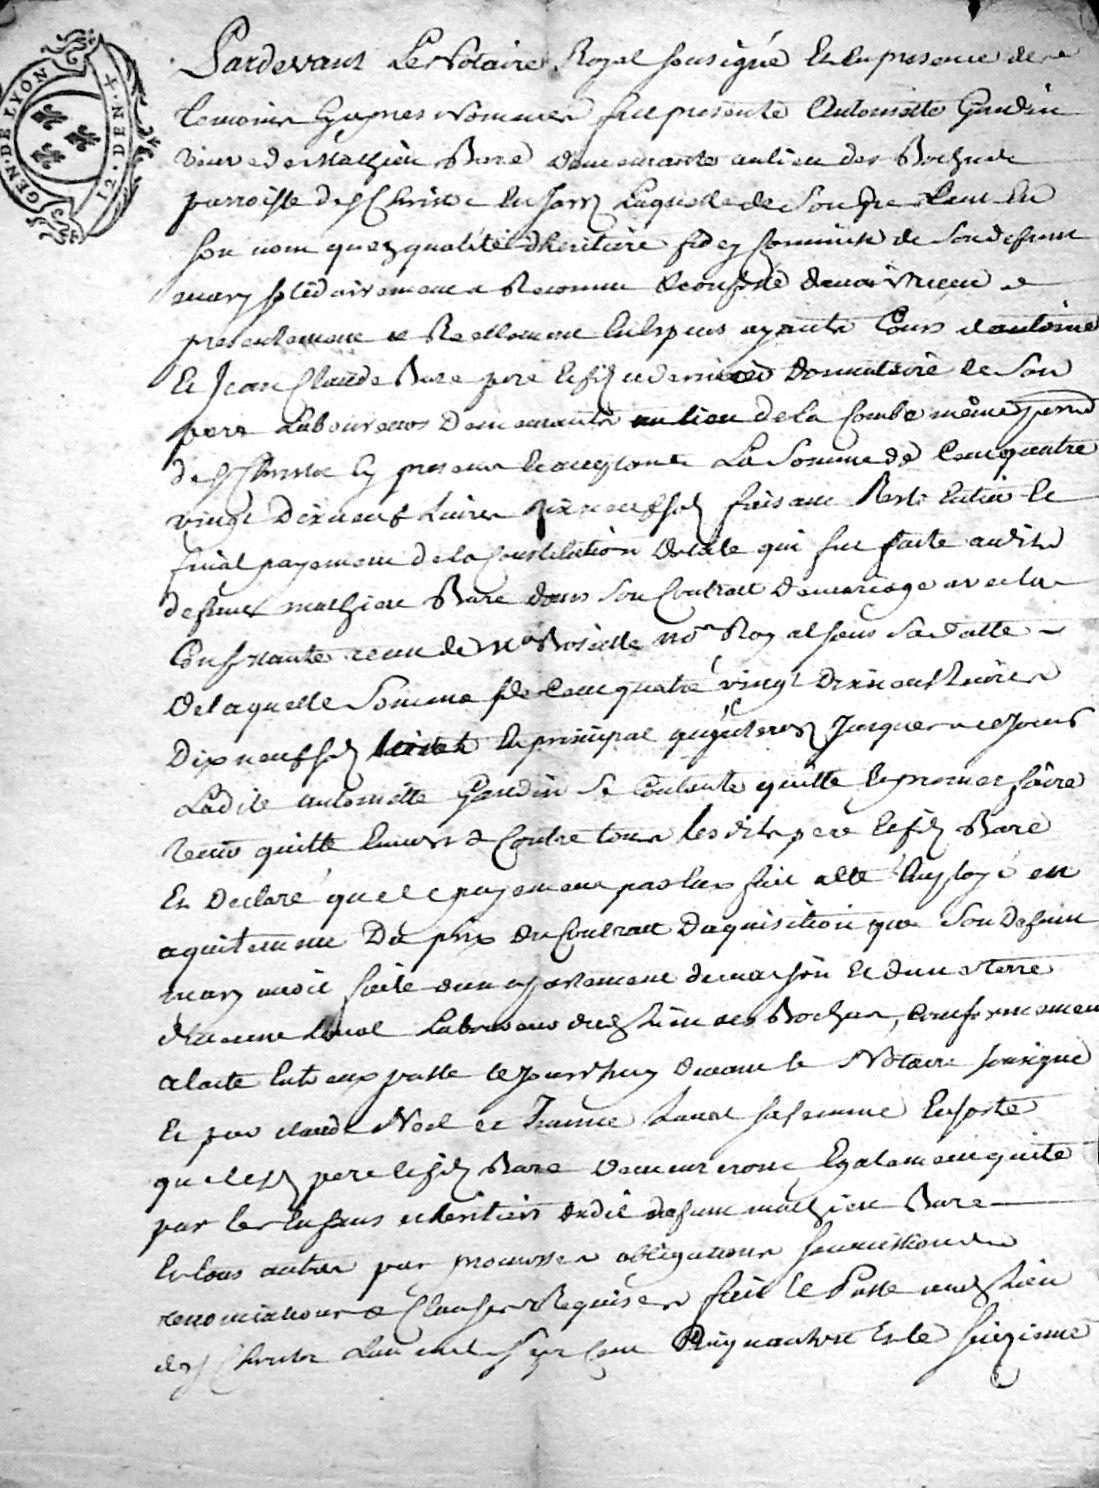 GEN · DE LYON
12 · DEN
Pardevant Le Notaire Royal sousigné Et en presence de
Temoins Cy apres Nommes fut presente Antoinette Gaudin
veuve de Mathieu Bare demeurante au lieu des
parroisse de St Christo En Jarez Laquelle de Son gre tant En
son nom que qualité dheritiere fidei commise de Son defunt
mary solidairement a Reconnu Et confessé davoir Receu
presentement et Reellement En Especes ayants Cours dantoine
Et Jean Claude Bare pere Et fils ce dernier donnataire de Son
pere Laboureurs demeurants au lieu de la Combe même parroisse
de St Christo Cy presents Et acceptants La Somme de Cent quatre
vingt Dixneuf Livres Dix neuf sols faisant Reste Entier Et
final payement de la Constitution dotale qui fut faite audit
defunt mathieu Bare dans Son Contrat de mariage avec la
Confessante receu de Me no.re Royal sous Sa datte
De laquelle Somme de Cent quatre vingt Dixneuf Livres
Dix neuf sols En principal Jusques a ce Jour
Ladite antoinette Gaudin Se Contente quitte Et promet faire
tenir quitte Envers & Contre tous Lesdits pere Et fils Bare
Et Declare que le payement pas Eux fait a été Employé en
aquitement Du prix du Contrat Daquisition que Son Defunt
mary avoit faite dun apartement de maison Et dune terre
dEtienne Laboureur dudit Lieu des conformement
a lacte Entre eux passé ce Jourdhuy devant le Notaire sousigné
Et par claude Noel et sa femme En sorte
que lesd pere Et fils Bare demeureront Egalement quitte
par les Enfans et heritiers dudit defunt mathieu Bare
En tous autres par promesses obligations soumissions
renonciations & Clauses Requises fait Et Passé aud Lieu
de St Christo Lan mil Sept Cent Cinquante Et le